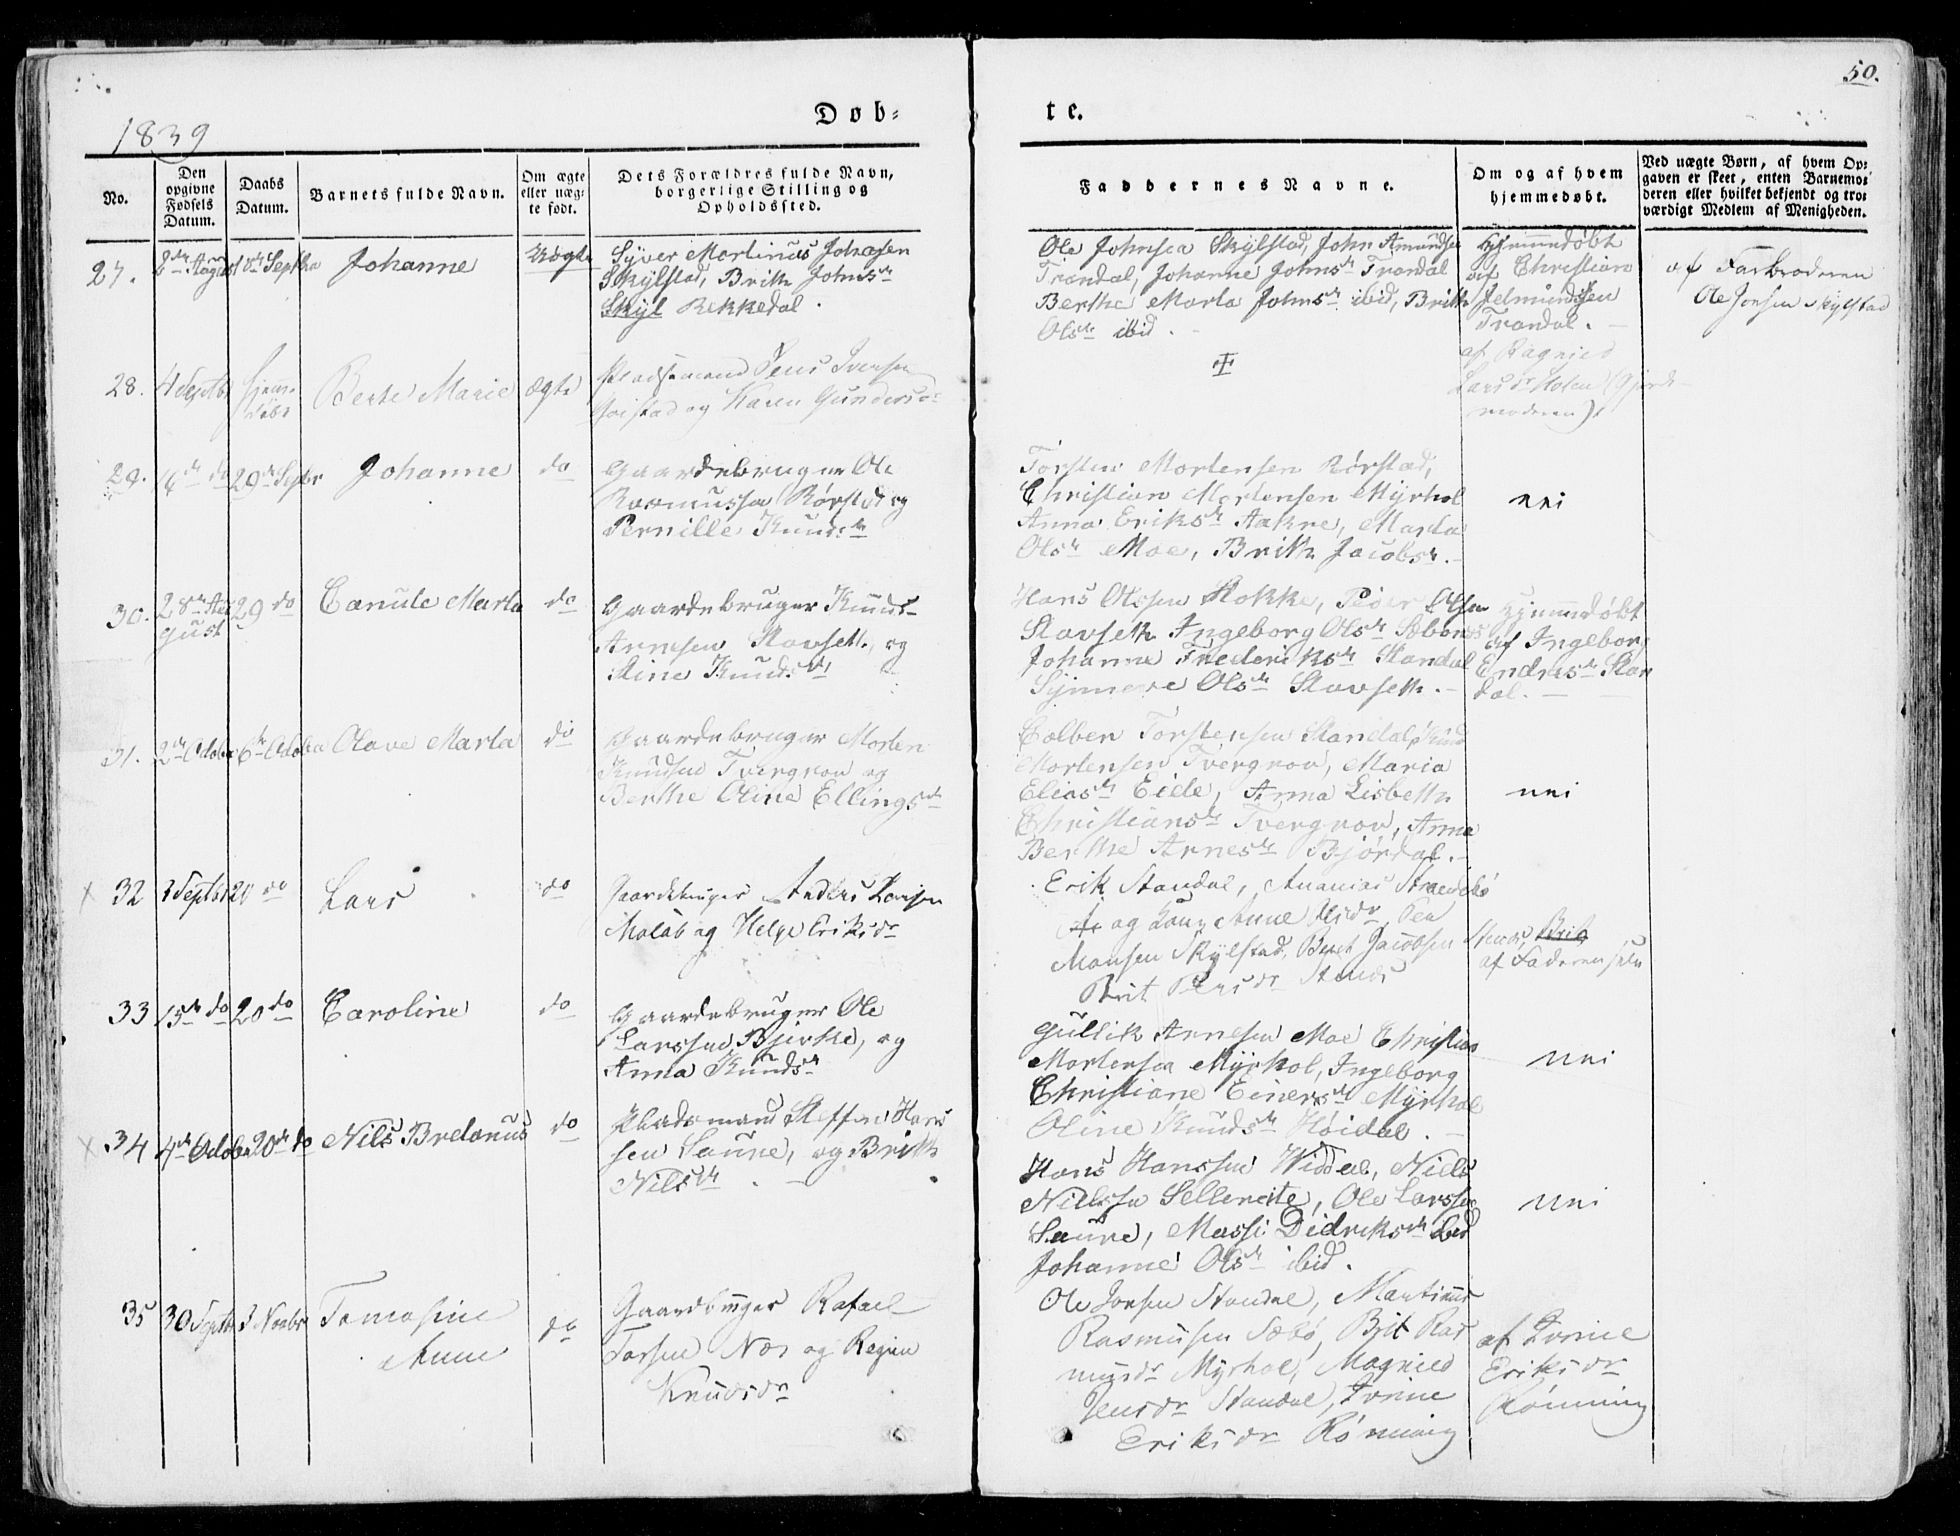 50.
Døb-
te.
1839
No.
Den
opgivne
Fødsels
Datum.
Daabs
Datum.
Barnets fulde Navn.
Om ægte
eller uæg-
te født.
Dets Forældres fulde Navn,
borgerlige Stilling og
Opholdssted.
Faddernes Navne.
Om og af hvem
hjemmedøbt.
Ved uægte Børn, af hvem Op-
gaven er skeet, enten Barnemo-
deren eller hvilket bekjendt og tro-
værdigt Medlem af Menigheden.
27.
Johanne
Uægte
Syver Martinus Johnsen
Skylstad, Brith Johnsdr
Skyl Rekkedal.
Ole Johnsen Skylstad, John Amundsen
Trandal, Johanne Johnsdr Trandal
Berthe Marta Johnsdr ibid, Brith
Olsdr ibid.
Hjemmedøbt
af Christian
Trandal.
af Farbroderen
Ole Jonsen Skylstad
28.
4 Septbr
hjem-
døbt
Berte Marie
ægte
Pladsemand Jens Iversen
og Karen Gunders
af Ragnied
Larsdr (Gjord-
moderen).
29.
16de do
29de Septbr
Johanne
do
Gaardebruger Ole
Rasmussen Rørstad og
Pernille Knudsdr
Torsten Mortensen Rørstad,
Christian Mortensen Myrhol
Anna Eriksdr Aakre, Marta
Olsdr Moe, Brith Jacobsdr.
nei
30.
28de Au-
gust
29 do
Canute Marta
do
Gaardebruger Knud
Arnesen Stavseth, og
Stine Knudsdr
Hans Olssen Stokke, Peder Olsen
Stavseth Ingeborg Olsdr
Johanne Frederiksdr Standal
Synneve Olsdr Stavseth.
Hjemmedøbt
af Ingeborg
Endresdr Stan
dal.
31.
2den October
6te October
Olave Marta
do
Gaardebruger Morten
Knudsen Tvergrov og
Berthe Oline Ellingsdr
Colben Torstensen Standal, Knud
Mortensen Tvergrov, Maria
Eliasdr Eide, Anna Lisbeth
Christiansdr Tvergrov, Anna
Berthe Arnesdr Bjørdal.
nei
32
3 Septbr
20 do
Lars
do
Gaardebruger Anders Larsen
Maläb og Helge Eriksdr
Erik Standal, Ananias
og Anne Olsdr,
Monsen Skylstad, Berit Jacobsen
Brit Persdr
Brit
af Faderen selv
33
15de do
20 do
Caroline
do
Gaardebruger Ole
Larssen Bjerke, og
Anna Knudsdr
Gullik Arnesen Moe Christian
Mortensen Myrhol, Ingeborg
Christiane Einersdr Myrhol
Oline Knudsdr Høidal.
nei
34
4de October
20de do
Nils Bretanus
do
Pladsmand Steffen Hans
sen Saure, og Brith
Nilsdr
Hans Hanssen Widdal, Niels
Nielssen Sellereite, Ole Larssen
Saure, Massi Didriksdr ibid
Johanne Olsdr ibid.
nei
35
30 Septbr
3 Novbr
Tomasine
Anne
do
Gaardbruger Rafael
Torsen Nos og Regine
Knudsdr
Ole Jonsen Standal, Martinus
Rasmusen Sæbø, Brit Ras
musdr Myrhol, Magnied
Jensdr Standal, Ivrine
Eriksdr Rønning
af Ivrine
Eriksdr
Rønning